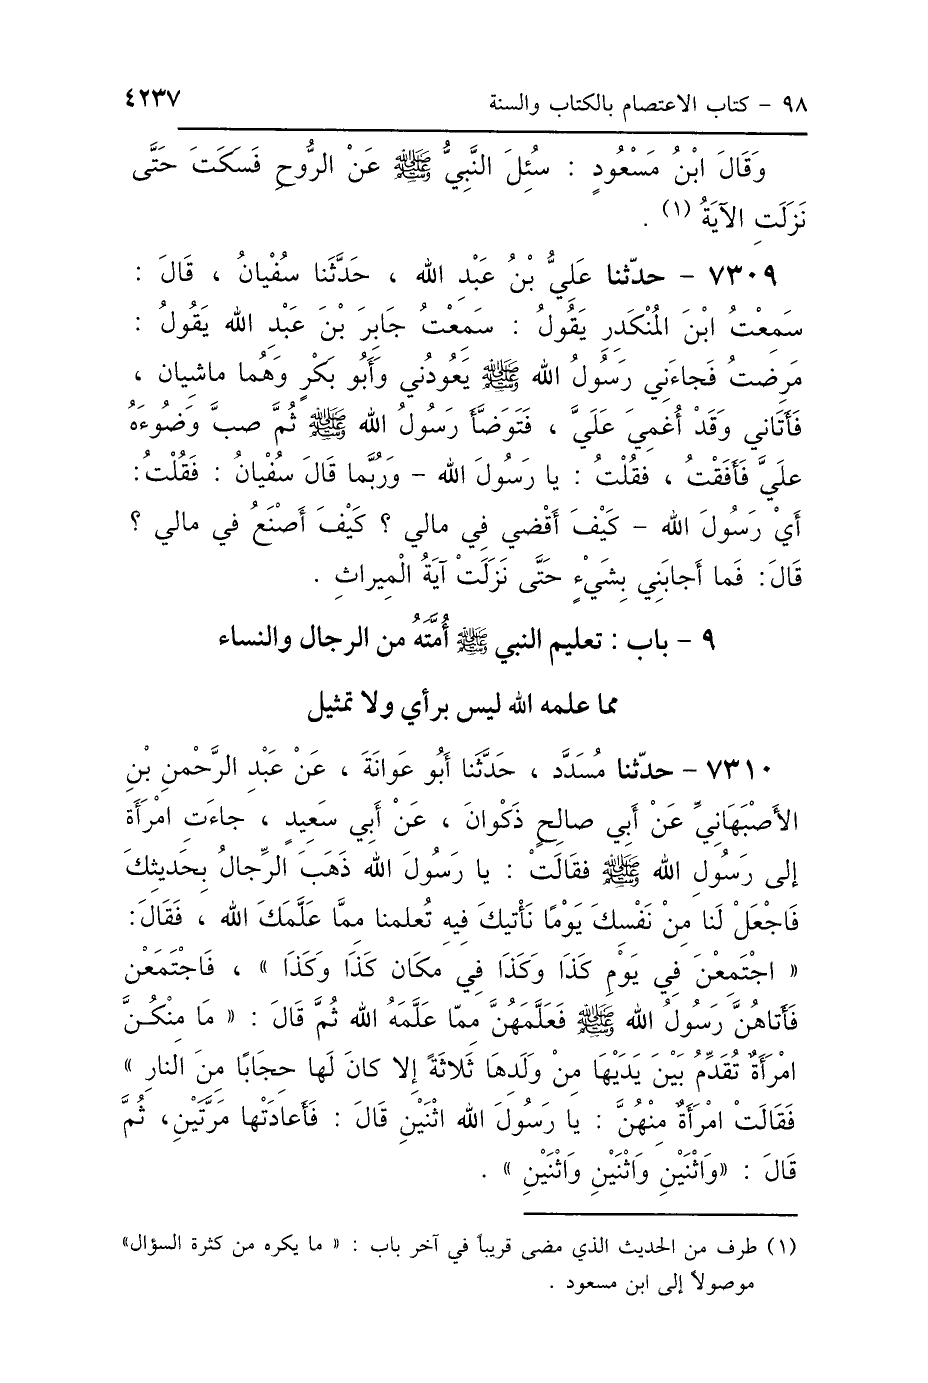 ٩٨ – كتاب الاعتصام بالكتاب والسنة
٤٢٣٧
وَقَالَ ابْنُ مَسْعُودٍ : سُئِلَ النَّبِيُّ ﷺ عَنْ الرُّوحِ فَسَكَتَ حَتَّى
نَزَلَتِ الآيَةُ (١) .
٧٣٠٩ – حدّثنا عَلِيُّ بْنُ عَبْدِ الله ، حَدَّثَنا سُفْيانُ ، قَالَ :
سَمِعْتُ ابْنَ المُنْكَدِرِ يَقُولُ : سَمِعْتُ جَابِرَ بْنَ عَبْدِ الله يَقُولُ :
مَرِضتُ فَجاءَنِي رَسُولُ الله ﷺ يَعُودُنِي وَأَبُو بَكْرٍ وَهُما ماشِيان ،
فَأَتَانِي وَقَدْ أُغمِيَ عَلَيَّ ، فَتَوَضَّأَ رَسُولُ الله ﷺ ثُمَّ صبَّ وَضُوءَهُ
علَيَّ فَأَفَقْتُ ، فقُلْتُ : يا رَسُولَ الله – وَرُبَّما قَالَ سفْيانُ : فَقُلْتُ:
أَيْ رَسُولَ الله – كَيْفَ أَقْضي فِي مالي ؟ كَيْفَ أَصْنَعُ في مالي ؟
قَالَ: فَما أجابَنِي بِشَيْءٍ حَتَّى نَزَلَتْ آيَةُ الْمِيراثِ .
٩ – باب : تعليم النبي ﷺ أُمَّتَهُ من الرجال والنساء
مما علمه الله ليس برأي ولا تمثيل
٧٣١٠ – حدّثنا مُسَدَّد ، حَدَّثَنا أَبُو عَوَانَةَ ، عَنْ عَبْدِ الرَّحْمنِ بْنِ
الأَصْبَهَانِيِّ عَنْ أَبي صالِحٍ ذَكْوانَ ، عَنْ أَبي سَعِيدٍ ، جاءَتِ امْرَأَة
إلى رَسُولِ الله ﷺ فقَالَتْ : يا رَسُولَ الله ذَهَبَ الرِّجالُ بِحَديثِكَ
فَاجْعَلْ لَنا مِنْ نَفْسكَ يَوْمًا نَأْتيكَ فِيهِ تُعلمنا مِمَّا عَلَّمَكَ الله ، فَقَالَ:
« اجْتَمِعْنَ فِي يَوْمِ كَذَا وَكَذَا فِي مكَان كَذَا وَكَذَا » ، فَاجْتَمَعْن
فَأَتاهُنَّ رَسُولُ الله ﷺ فَعَلَّمَهُنَّ مِمّا عَلَّمَهُ الله ثُمَّ قَالَ : « مَا مِنْكُـنَّ
امْرَأَةٌ تُقَدِّمُ بَيْنَ يَدَيْهَا مِنْ ولَدِهَا ثَلاثَةً إلا كانَ لَها حِجَابًا مِنَ النارِ »
فَقَالَتْ امْرَأَةٌ مِنْهُنَّ : يا رَسُولَ الله اثْنَيْنِ قَالَ : فَأَعادَتْها مَرَّتَيْنِ، ثُمَّ
قَالَ : «وَاثْنَيْنِ وَاثْنَيْنِ وَاثْنَيْنِ » .
(١) طرف من الحديث الذي مضى قريباً في آخر باب : « ما يكره من كثرة السؤال»
موصولاً إلى ابن مسعود .